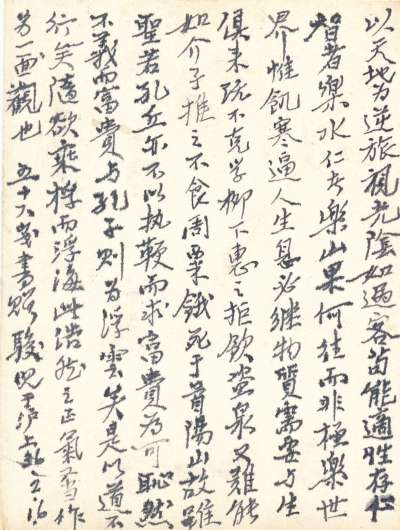 以天地为逆旅視光陰如過客苟能適性存仁
智者樂水仁者樂山果何往而非極樂世
界惟飢寒逼人生息必继物質需要与生
俱来既不克学柳下惠之拒飲盗泉又難能
如介子推之不食周粟餓死于首陽山故雖
聖若孔丘亦不以执鞭而求富貴為可恥然
不義而富貴与孔子则為浮雲矣是以道不
行笑隨欲乘桴而浮海此浩然之正氣當作
另一面觀也 五十六歲書贈駿兄于沪上